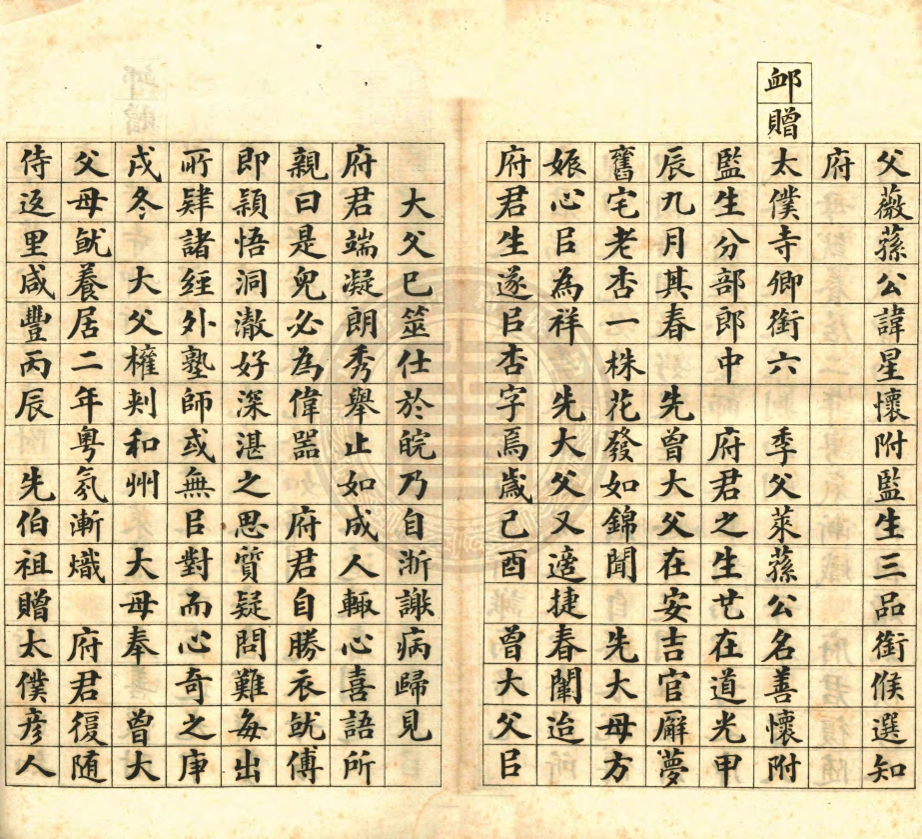 父薇蓀公諱星懷附監生三品銜候選知
府
卹贈太僕寺卿銜六　季父萊蓀公名善懷附
監生分部郎中　府君之生也在道光甲
辰九月其春　先曾大父在安吉官廨夢
舊宅老杏一株花發如錦聞　先大母方
娠心㠯為祥　先大父又適捷春闈迨
府君生遂㠯杏字焉歲己酉　曾大父㠯
大父已筮仕於皖乃自浙謝病歸見
府君端凝朗秀舉止如成人輒心喜語所
親曰是兒必為偉器　府君自勝衣就傅
即穎悟洞澈好深湛之思質疑問難每出
所肄諸經外塾師或無㠯對而心奇之庚
戌冬　大父權刺和州　大母奉　曾大
父母就養居二年粵氛漸熾　府君復随
侍返里咸豐丙辰　先伯祖贈太僕彥人